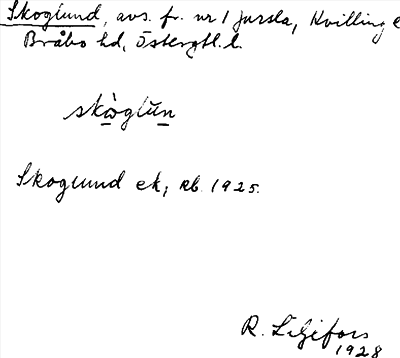 Skoglund, avs. fr. nr 1 Jursla, Kvillinge
Bråbo hd, Östergtl. l.
skòglŭn
Skoglund ek, rb. 1925.
R. Liljefors
1928